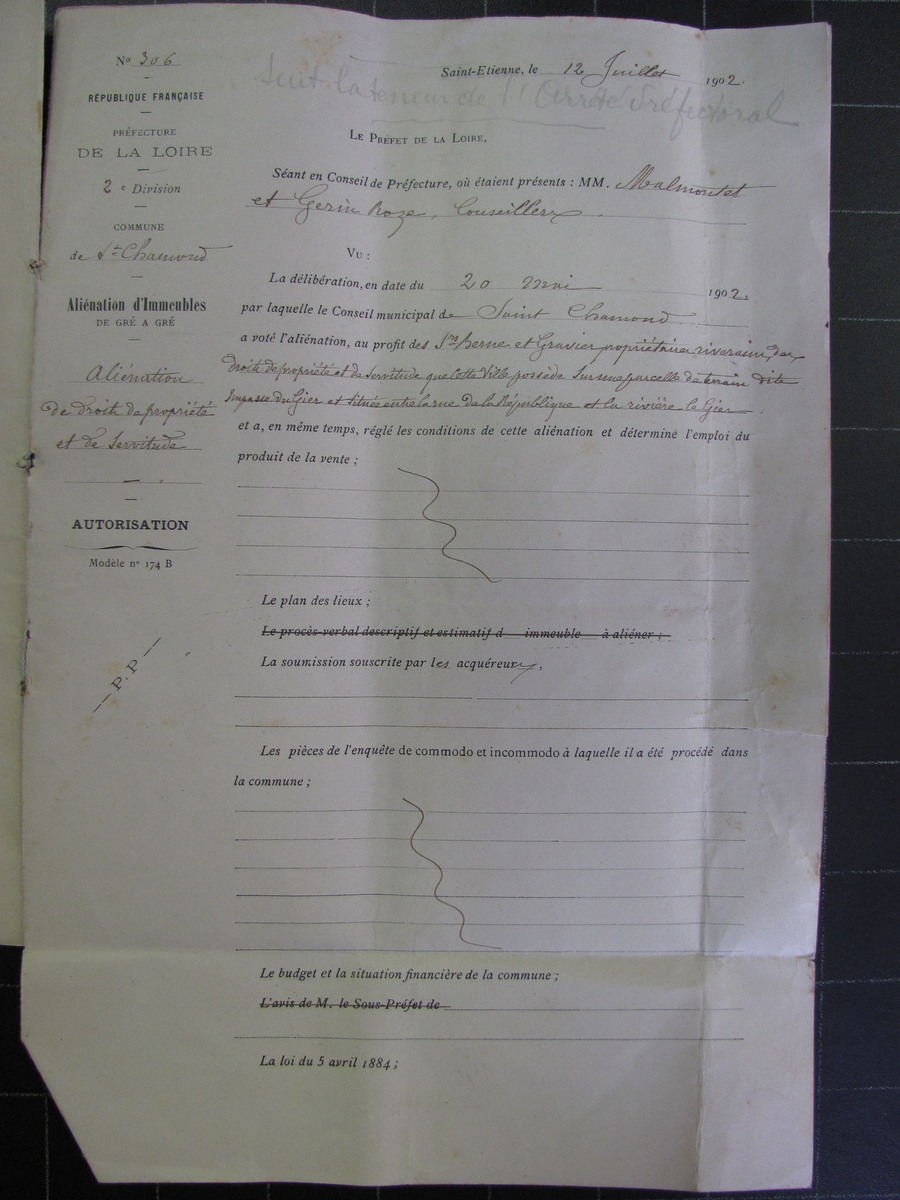 No 306
RÉPUBLIQUE FRANÇAISE
PRÉFECTURE
DE LA LOIRE
2e Division
COMMUNE
de St Chamond
Aliénation d'Immeubles
DE GRÉ A GRÉ
Aliénation
de droits de propriété
et de Servitude
AUTORISATION
Modèle no 174 B
P.P
Saint-Etienne, le 12 Juillet 1902.
Suit la teneur de l'Arrêté Préfectoral
LE PRÉFET DE LA LOIRE,
Séant en Conseil de Préfecture, où étaient présents : MM. Malmontet
et Gerin Roze, Conseillers.
VU :
La délibération, en date du 20 mai 1902.
par laquelle le Conseil municipal de Saint Chamond
a voté l'aliénation, au profit des Srs Herne et Gravier propriétaires riverains, des
droits de propriété et de servitude que cette Ville possède sur une parcelle de terrain dite
Impasse du Gier et située entre la rue de la République et la rivière le Gier.
et a, en même temps, réglé les conditions de cette aliénation et déterminé l'emploi du
produit de la vente ;
Le plan des lieux ;
Le procès-verbal descriptif et estimatif d immeuble à aliéner ;
La soumission souscrite par les acquéreurs,
Les pièces de l'enquête de commodo et incommodo à laquelle il a été procédé dans
la commune ;
Le budget et la situation financière de la commune ;
L'avis de M. le Sous-Préfet de
La loi du 5 avril 1884 ;